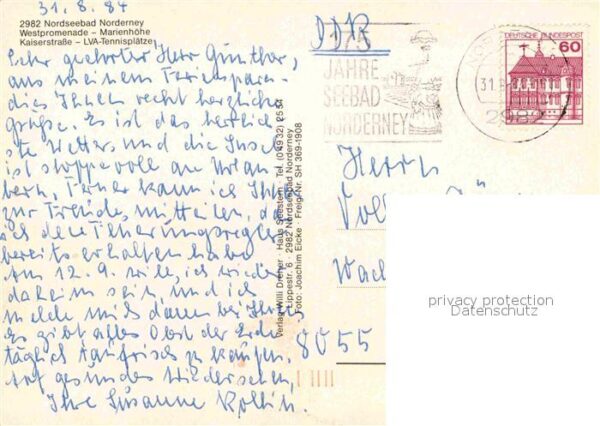 31. 8. 84
2982 Nordseebad Norderney
Westpromenade - Marienhöhe
Kaiserstraße - LVA-Tennisplätze
Sehr geehrter Herr Günther,
aus meinem Ferienpara-
dies Ihnen recht herzliche
Grüße. Es ist das herrlich-
ste Wetter und die Insel
ist stoppevoll an Urlau-
bern. Ferner kann ich Ihnen
zur Freude mitteilen, daß
ich den Feuerungsregler
bereits erhalten habe.
Am 12. 9. will ich wieder
daheim sein und ich
melde mich dann bei Ihnen.
Es gibt alles Obst der Erde
täglich taufrisch zu kaufen.
Auf gesundes Wiedersehen,
Ihre Susanne
Verlag Willi Dreher · Haus Seestern · Tel. (04932) 2554
Lippestr. 6 · 2982 Nordseebad Norderney
Foto: Joachim Eicke · Freig. Nr. SH 369-1908
DDR
175
JAHRE
SEEBAD
NORDERNEY
31.
2982
DEUTSCHE BUNDESPOST
60
Herrn
8055
privacy protection
Datenschutz